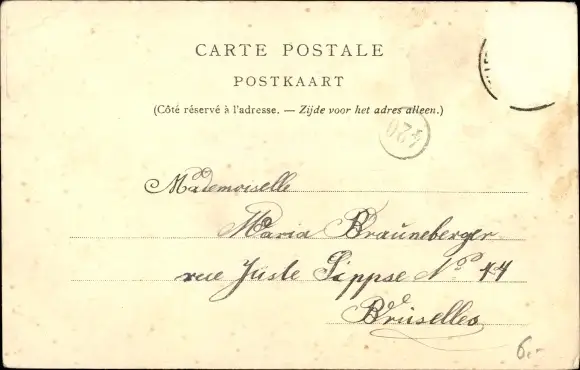 CARTE POSTALE
POSTKAART
(Côté réservé à l'adresse. — Zijde voor het adres alleen.)
Mademoiselle
Maria Brauneberger
rue Juste Lippse No 44
Bruxelles
6,-